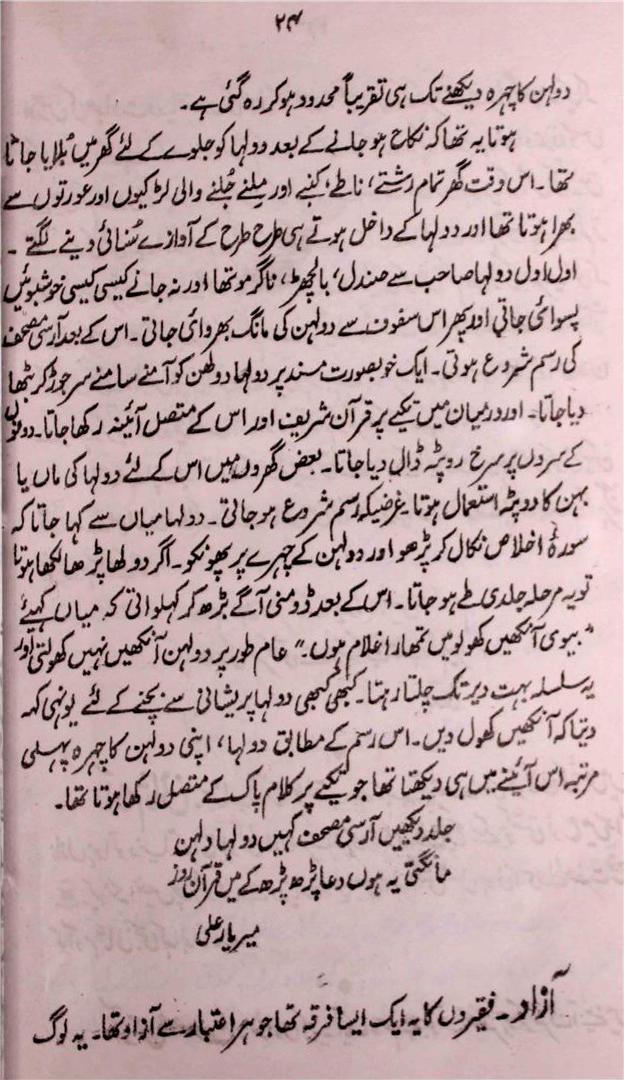 ۲۴
دولہن کا چہرہ دیکھنے تک ہی تقریباً محدود ہو کر رہ گئی ہے۔
ہوتا یہ تھا کہ نکاح ہو جانے کے بعد دولہا کو جلوے کے لئے گھر میں بُلایا جاتا
تھا۔ اس وقت گھر تمام رشتے، ناطے، کنبے اور مِلنے جُلنے والی لڑکیوں اور عورتوں سے
بھرا ہوتا تھا اور دولہا کے داخل ہوتے ہی طرح طرح کے آوازے سُنائی دینے لگتے۔
اول اول دولہا صاحب سے صندل، بالچھڑ، ناگر موتھا اور نہ جانے کیسی کیسی خوشبوئیں
پسوائی جاتی اور پھر اس سفوف سے دولہن کی مانگ بھروائی جاتی۔ اس کے بعد آرسی مصحف
کی رسم شروع ہوتی۔ ایک خوبصورت مسند پر دولہا دولھن کو آمنے سامنے سر جوڑ کر بٹھا
دیا جاتا۔ اور درمیان میں تکیے پر قرآن شریف اور اس کے متصل آئینہ رکھا جاتا۔ دونوں
کے سروں پر سرخ روپٹہ ڈال دیا جاتا۔ بعض گھروں میں اس کے لئے دولہا کی ماں یا
بہن کا دوپٹہ استعمال ہوتا۔ غرضیکہ رسم شروع ہو جاتی۔ دولہا میاں سے کہا جاتا کہ
سورۂ اخلاص نکال کر پڑھو اور دولہن کے چہرے پر پھونکو۔ اگر دولھا پڑھا لکھا ہوتا
تو یہ مرحلہ جلدی طے ہو جاتا۔ اس کے بعد ڈومنی آگے بڑھ کر کہلواتی کہ میاں کہیئے
"بیوی آنکھیں کھولو میں تمھارا غلام ہوں۔" عام طور پر دولہن آنکھیں نہیں کھولتی اور
یہ سلسلہ بہت دیر تک چلتا رہتا۔ کبھی کبھی دولہا پریشانی سے بچنے کے لئے یونہی کہہ
دیتا کہ آنکھیں کھول دیں۔ اس رسم کے مطابق دولہا، اپنی دولہن کا چہرہ پہلی
مرتبہ اس آئینے میں ہی دیکھتا تھا جو تکیے پر کلام پاک کے متصل رکھا ہوتا تھا۔
جلد دیکھیں آرسی مصحف کہیں دولہا دلہن
مانگتی یہ ہوں دعا پڑھ پڑھ کے میں قرآن روز
میر یار علی
آزاد۔ فقیروں کا یہ ایک ایسا فرقہ تھا جو ہر اعتبار سے آزاد تھا۔ یہ لوگ